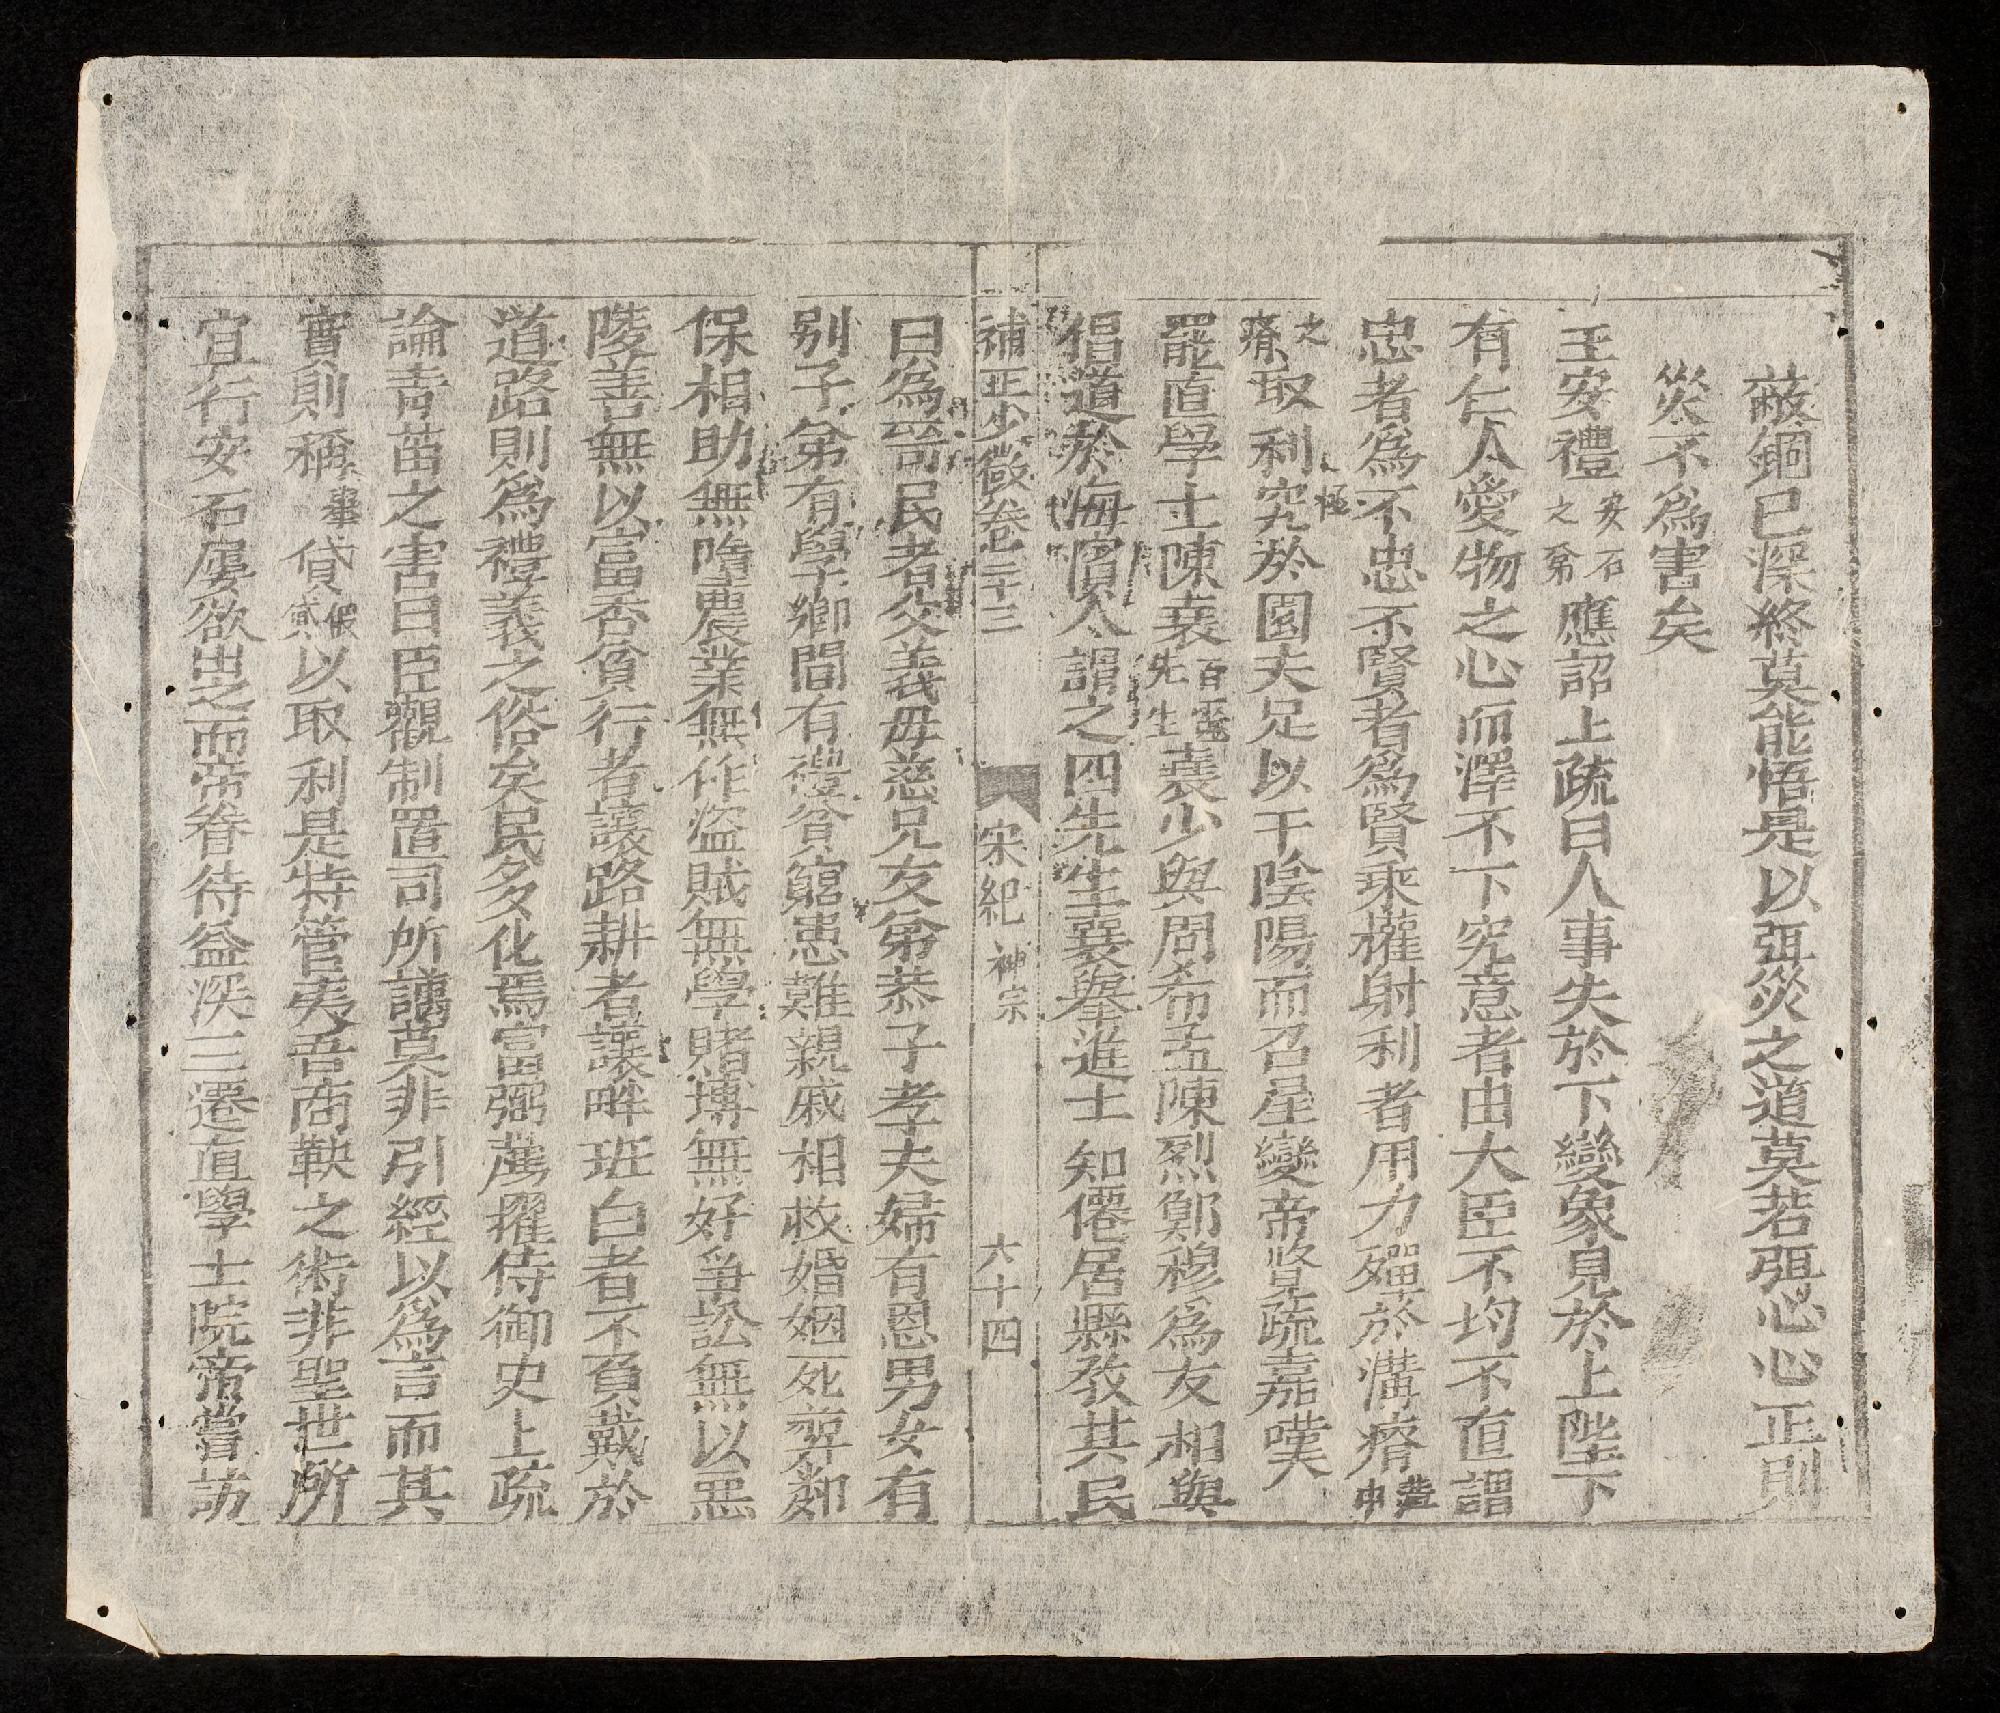 蔽錮已深終莫能悟是以弭災之道莫若弭心心正則
災不爲害矣
王安禮安石之弟應詔上疏曰人事失於下變象見於上陛下
有仁人愛物之心而澤不下究意者由大臣不均不直謂
忠者爲不忠不賢者爲賢乘權射利者用力殫於溝瘠
之瘠取利究於園夫足以干陰陽而召星變帝覽疏嘉嘆
罷直學士陳襄先生襄少與周希孟陳烈鄭穆爲友相與
倡道於海濱人謂之四先生襄舉進士知僊居縣敎其民
補正少微卷二十三 宋紀 神宗 六十四
曰爲吾民者父義母慈兄友弟恭子孝夫婦有恩男女有
别子弟有學鄉閭有禮貧窮患難親戚相救婚姻死葬鄰
保相助無墮農業無作盗賊無學賭博無好爭訟無以惡
陵善無以富吞貧行者讓路耕者讓畔班白者不負戴於
道路則爲禮義之俗矣民多化焉富弼薦擢侍御史上疏
論靑苗之害曰臣觀制置司所議莫非引經以爲言而其
實則稱貸以取利是特管夷吾商鞅之術非聖世所
宜行安石屢欲出之而帝眷待益深三遷直學士院帝嘗訪